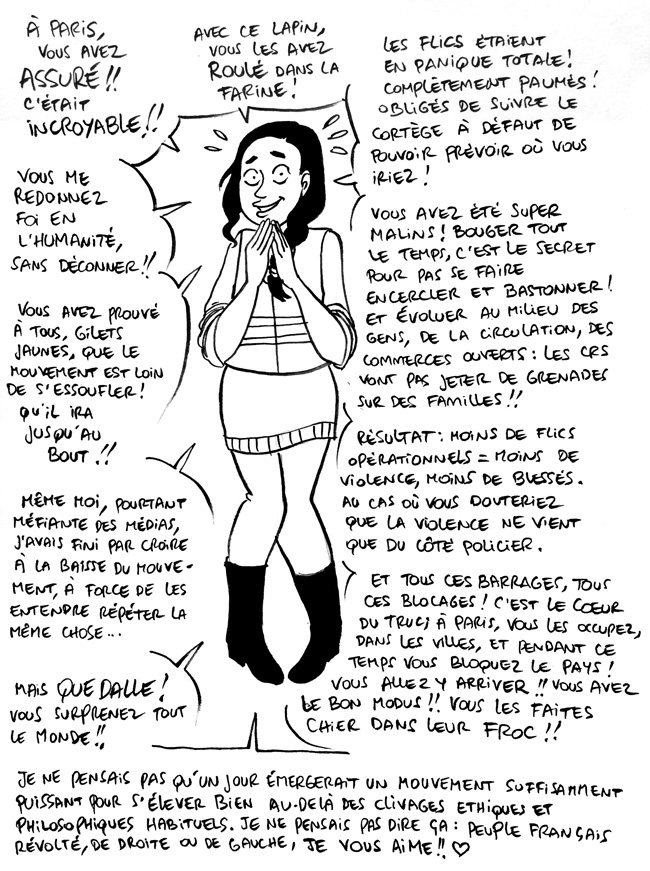 À PARIS,
VOUS AVEZ
ASSURÉ!!
C'ÉTAIT
INCROYABLE!!
AVEC CE LAPIN,
VOUS LES AVEZ
ROULÉ DANS LA
FARINE!
LES FLICS ÉTAIENT
EN PANIQUE TOTALE!
COMPLÈTEMENT PAUMÉS!
OBLIGÉS DE SUIVRE LE
CORTÈGE À DÉFAUT DE
POUVOIR PRÉVOIR OÙ VOUS
IRIEZ!
VOUS ME
REDONNEZ
FOI EN
L'HUMANITÉ,
SANS DÉCONNER!!
VOUS AVEZ ÉTÉ SUPER
MALINS! BOUGER TOUT
LE TEMPS, C'EST LE SECRET
POUR PAS SE FAIRE
ENCERCLER ET BASTONNER!
ET ÉVOLUER AU MILIEU DES
GENS, DE LA CIRCULATION, DES
COMMERCES OUVERTS: LES CRS
VONT PAS JETER DE GRENADES
SUR DES FAMILLES!!
VOUS AVEZ PROUVÉ
À TOUS, GILETS
JAUNES, QUE LE
MOUVEMENT EST LOIN
DE S'ESSOUFLER!
QU'IL IRA
JUSQU'AU
BOUT!!
RÉSULTAT: MOINS DE FLICS
OPÉRATIONNELS = MOINS DE
VIOLENCE, MOINS DE BLESSÉS.
AU CAS OÙ VOUS DOUTERIEZ
QUE LA VIOLENCE NE VIENT
QUE DU CÔTÉ POLICIER.
MÊME MOI, POURTANT
MÉFIANTE DES MÉDIAS,
J'AVAIS FINI PAR CROIRE
À LA BAISSE DU MOUVE-
MENT, À FORCE DE LES
ENTENDRE RÉPÉTER LA
MÊME CHOSE...
ET TOUS CES BARRAGES, TOUS
CES BLOCAGES! C'EST LE CŒUR
DU TRUC! À PARIS, VOUS LES OCCUPEZ,
DANS LES VILLES, ET PENDANT CE
TEMPS VOUS BLOQUEZ LE PAYS!
VOUS ALLEZ Y ARRIVER!! VOUS AVEZ
LE BON MODUS!! VOUS LES FAITES
CHIER DANS LEUR FROC!!
MAIS QUE DALLE!
VOUS SURPRENEZ TOUT
LE MONDE!!
JE NE PENSAIS PAS QU'UN JOUR ÉMERGERAIT UN MOUVEMENT SUFFISAMMENT
PUISSANT POUR S'ÉLEVER BIEN AU-DELÀ DES CLIVAGES ETHIQUES ET
PHILOSOPHIQUES HABITUELS. JE NE PENSAIS PAS DIRE ÇA: PEUPLE FRANÇAIS
RÉVOLTÉ, DE DROITE OU DE GAUCHE, JE VOUS AIME!! ♡